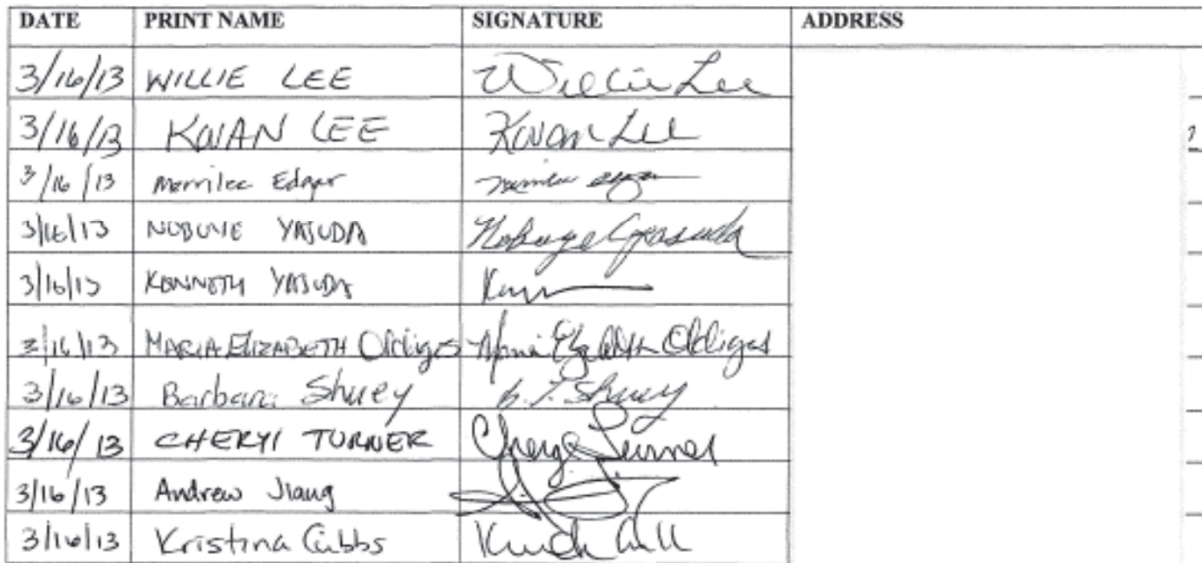 DATE PRINT NAME SIGNATURE ADDRESS
3/16/13 WILLIE LEE Willie Lee
3/16/13 KWAN LEE Kwan Lee
3/16/13 Merrilee Edgar
3/16/13 NOBUYE YASUDA Nobuye Yasuda
3/16/13 KENNETH YASUDA
3/16/13 MARIA ELIZABETH Oldiges Maria Elizabeth Oldiges
3/16/13 Barbara Shuey B. T. Shuey
3/16/13 CHERYl TURNER Cheryl Turner
3/16/13 Andrew Jiang
3/16/13 Kristina Gibbs